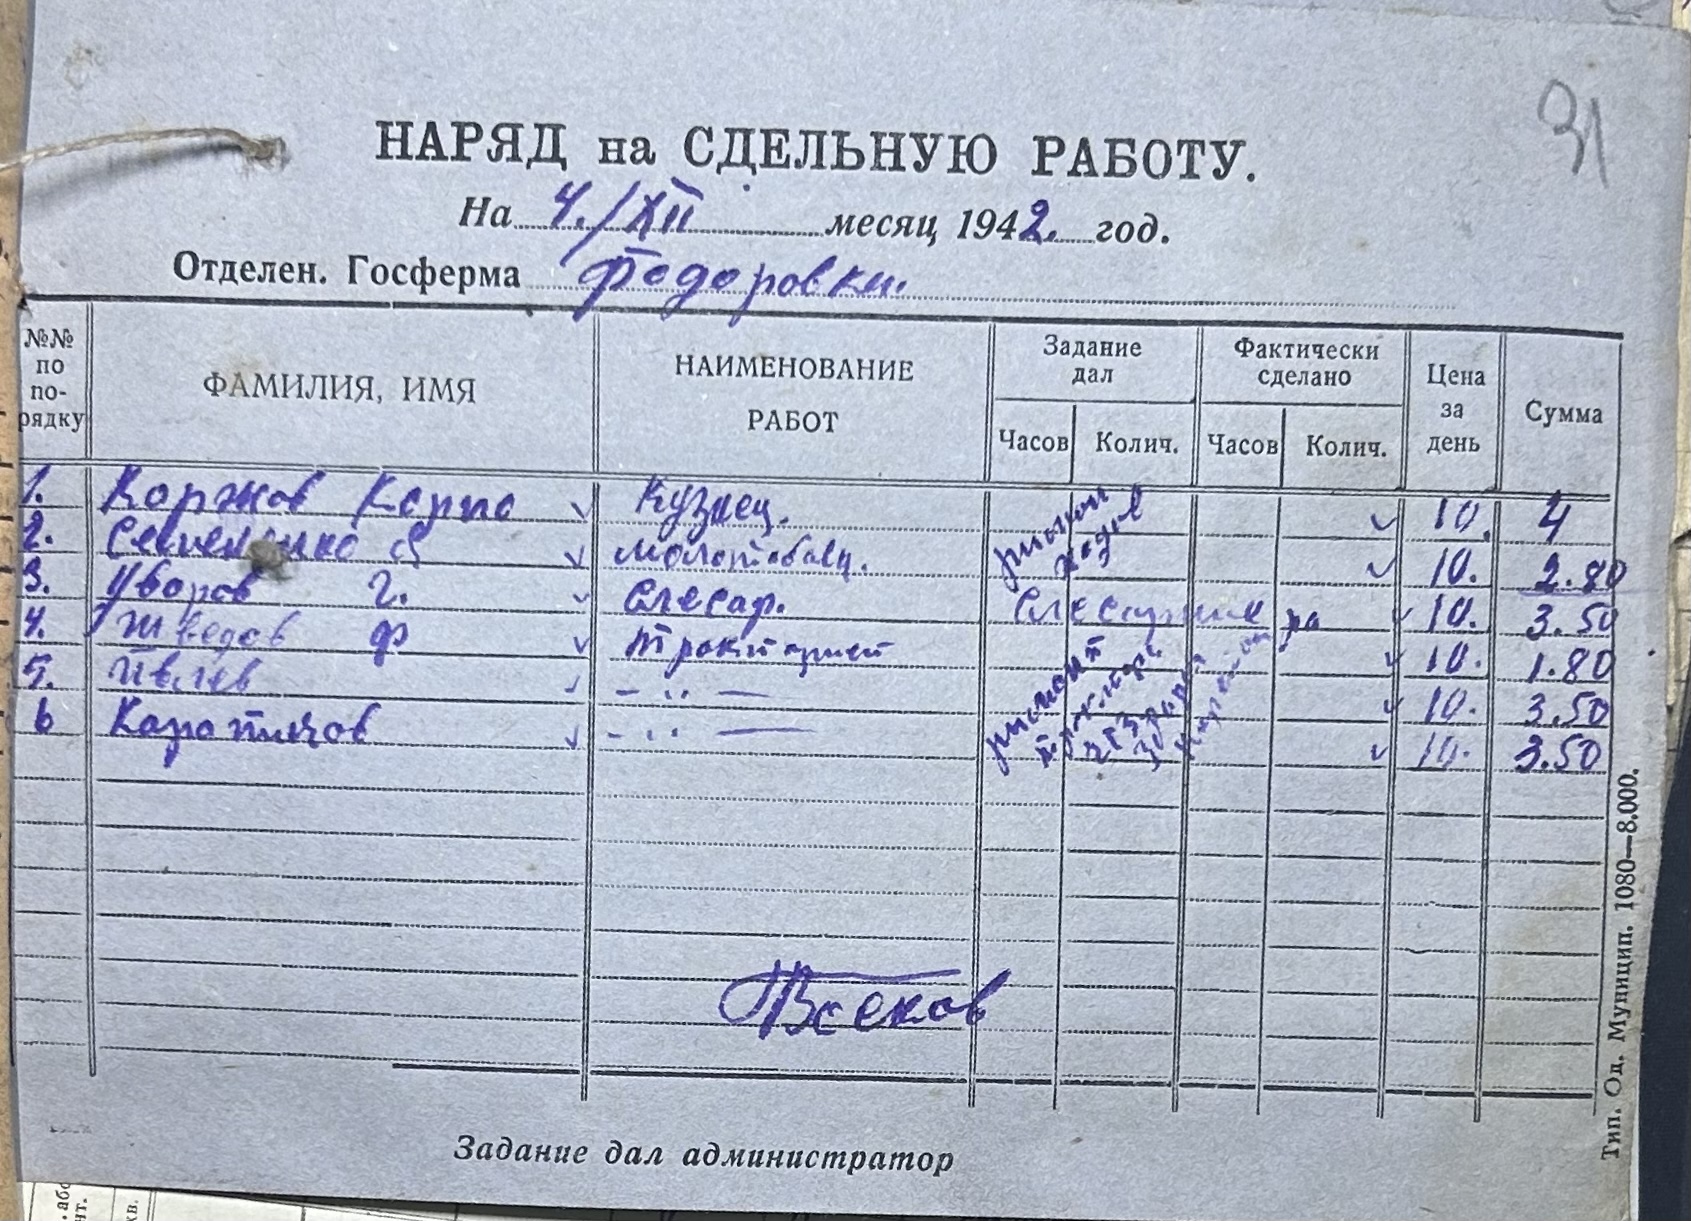 31
НАРЯД на СДЕЛЬНУЮ РАБОТУ.
На 4./XII месяц 1942. год.
Отделен. Госферма Федоровки.
№№ по по-рядку ФАМИЛИЯ, ИМЯ НАИМЕНОВАНИЕ РАБОТ Задание дал Часов Колич. Фактически сделано Часов Колич. Цена за день Сумма
1. Коржов Карпо Кузнец. 10. 4
2. Молотобаец. 10. 2.80
3. Уваров Г. Слесар. 10. 3.50
4. Шведов Ф 10. 1.80
5. Ивлев - 〃 — 10. 3.50
6 - 〃 — 10. 3.50
ремонт
Задание дал администратор
Тип. Од. Муницип. 1080—8.000.